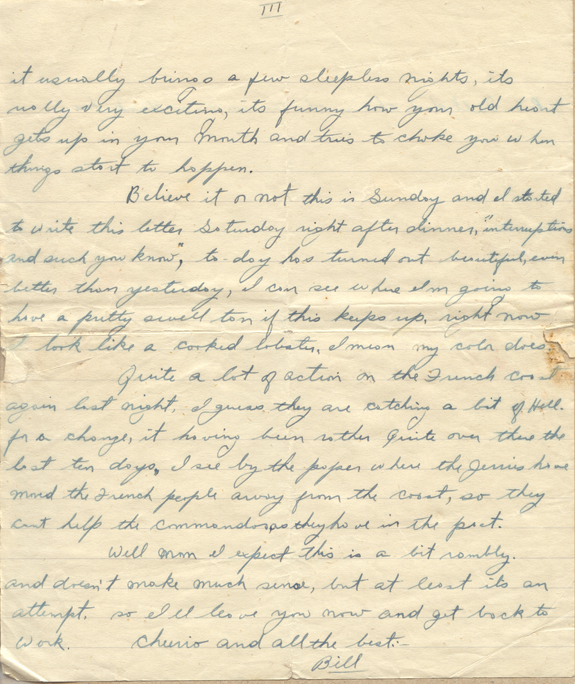 III
it usually brings a few sleepless nights, its
really very exciting, its funny how your old heart
gets up in your mouth and tries to choke you when
things start to happen.
Believe it or not this is Sunday and I started
to write this letter Saturday right after dinner, "interruptions
and such you know", to-day has turned out beautiful, even
better than yesterday, I can see where I'm going to
have a pretty swell tan if this keeps up, right now
I look like a cooked lobster, I mean my color does
Quite a lot of action on the French coast
again last night, I guess they are catching a bit of Hell
for a change, it having been rather Quite over there the
last ten days, I see by the paper where the Jerries have
moved the French people away from the coast, so they
cant help the commandoes as they have in the past.
Well Mom I expect this is a bit rambly.
and doesn't make much sense, but at least its an
attempt. so I'll leave you now and get back to
work. Cheerio and all the best:-
Bill